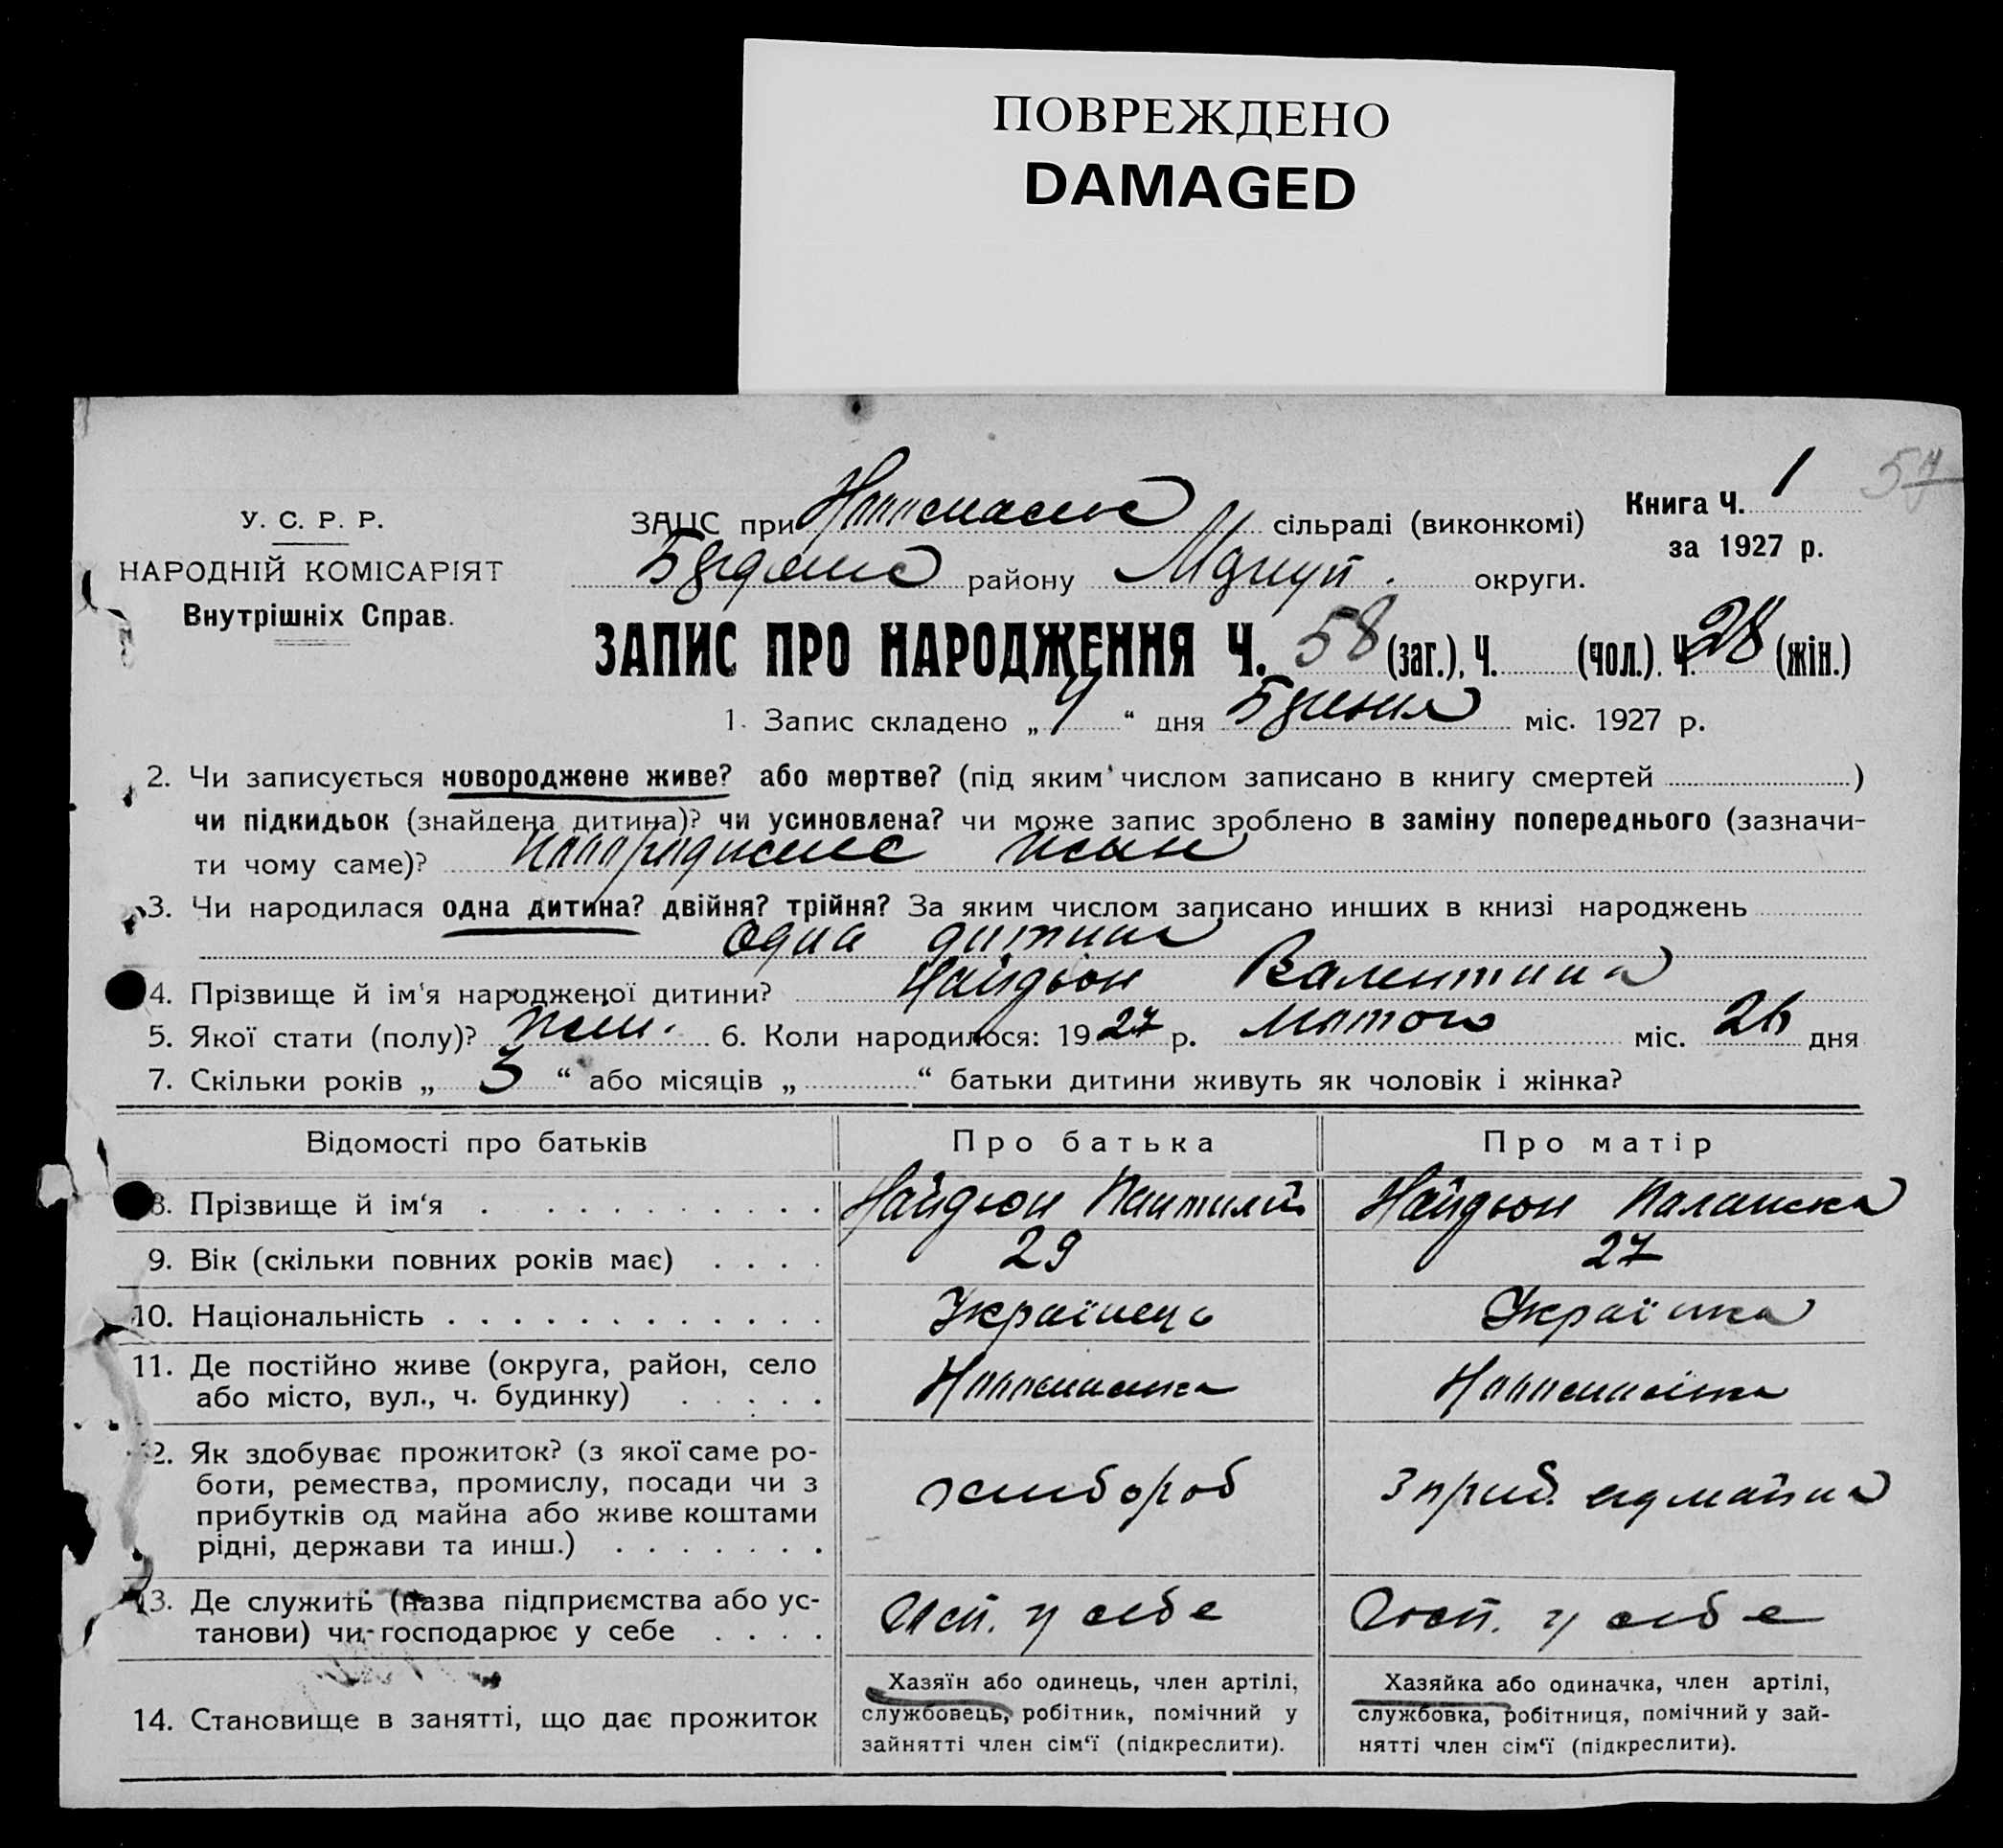 ПОВРЕЖДЕНО
DAMAGED
У. С. Р. Р.
НАРОДНІЙ КОМІСАРІЯТ
Внутрішніх Справ.
Книга Ч. 1
за 1927 р.
57
ЗАЦС при Новоспаське сільраді (виконкомі)
району округи.
ЗАПИС ПРО НАРОДЖЕННЯ Ч. 58 (заг.), Ч. (чол.). Ч. 28 (жін.)
1. Запис складено „ 4 “ дня міс. 1927 р.
2. Чи записується новороджене живе? або мертве? (під яким числом записано в книгу смертей )
чи підкидьок (знайдена дитина)? чи усиновлена? чи може запис зроблено в заміну попереднього (зазначи-
ти чому саме)? новороджене живе
3. Чи народилася одна дитина? двійня? трійня? За яким числом записано инших в книзі народжень
одна дитина
4. Прізвище й ім'я народженої дитини? Найдьон Валентина
5. Якої стати (полу)? жін. 6. Коли народилося: 1927 р. лютого міс. 26 дня
7. Скільки років „ 3 “ або місяців „ “ батьки дитини живуть як чоловік і жінка?
Відомості про батьків Про батька Про матір
8. Прізвище й ім‘я . . . . . . . . . . . Найдьон Пантилій Найдьон Палажка
9. Вік (скільки повних років має) . . . . 29 27
10. Національність . . . . . . . . . . . . Українець Українка
11. Де постійно живе (округа, район, село
або місто, вул., ч. будинку) . . . . . Новоспаська Новоспаська
12. Як здобуває прожиток? (з якої саме ро-
боти, ремества, промислу, посади чи з
прибутків од майна або живе коштами
рідні, держави та инш.) . . . . . . .
хлібороб З приб. од майна
13. Де служить (назва підприємства або ус-
танови) чи господарює у себе . . . . Госп. у себе Госп. у себе
14. Становище в занятті, що дає прожиток
Хазяїн або одинець, член артілі,
службовець, робітник, помічний у
зайнятті член сім‘ї (підкреслити).
Хазяйка або одиначка, член артілі,
службовка, робітниця, помічний у зай-
нятті член сім‘ї (підкреслити).